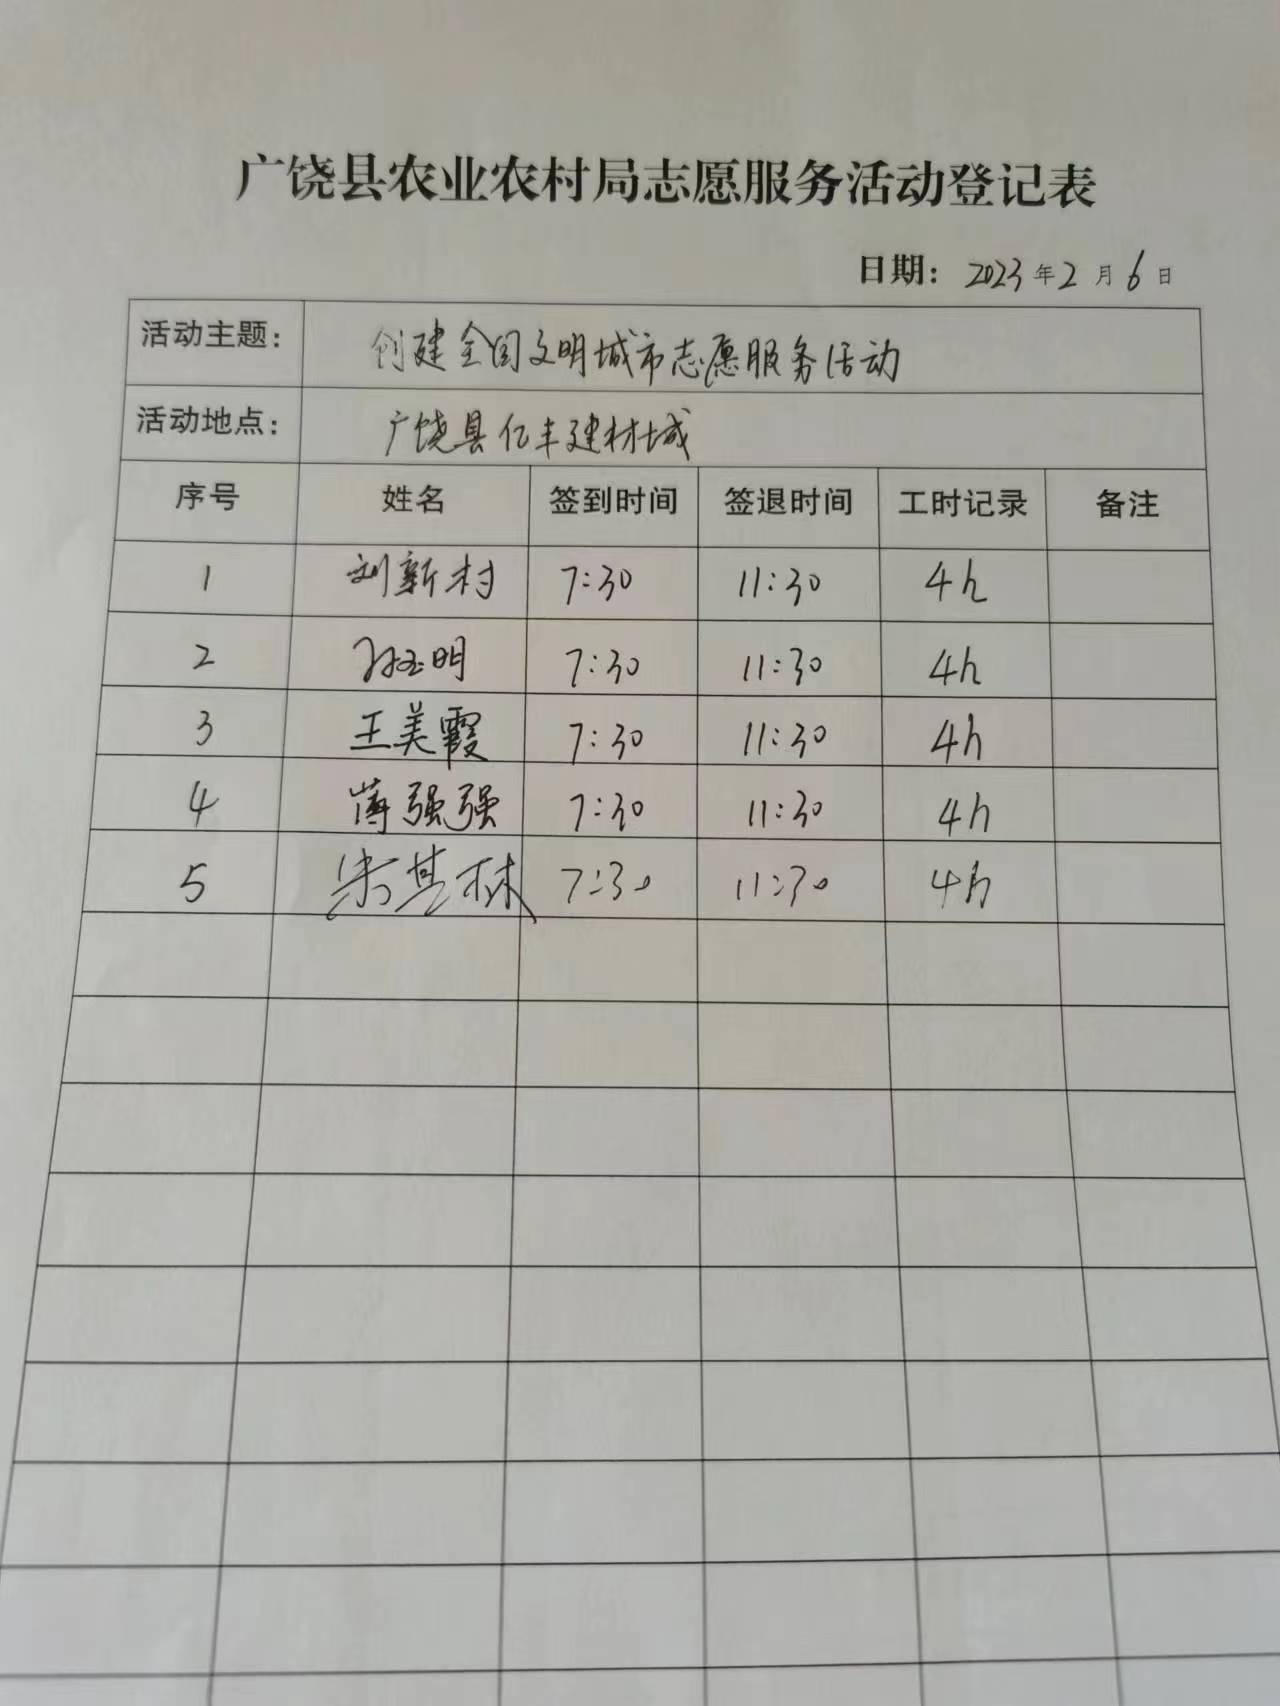 广饶县农业农村局志愿服务活动登记表
日期: 2023年2月6日
活动主题: 创建全国文明城市志愿服务活动
活动地点: 广饶县亿丰建材城
序号 姓名 签到时间 签退时间 工时记录 备注
1 刘新村 7:30 11:30 4h
2 孙玉明 7:30 11:30 4h
3 王美霞 7:30 11:30 4h
4 蒋强强 7:30 11:30 4h
5 宋其林 7:30 11:30 4h